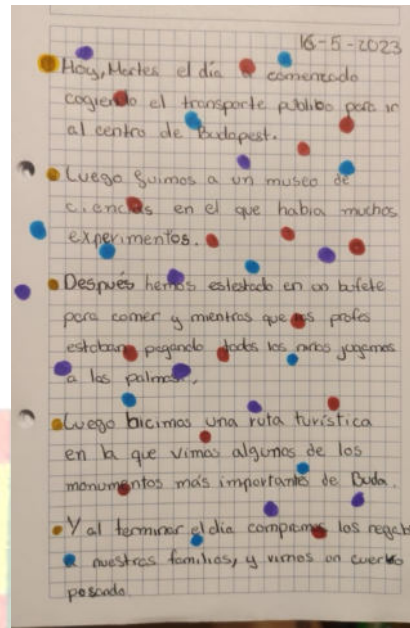 16-5-2023
Hoy, Martes el día a comenzado
cogiendo el transporte publibo para ir
al centro de Budapest.
Luego fuimos a un museo de
ciencias en el que habia muchos
experimentos.
Después hemos estado en un bufete
para comer y mientras que los profes
estaban pagando todos los niños jugamos
a las palmas.
Luego hicimos una ruta turística
en la que vimos algunos de los
monumentos más importantes de Buda.
Y al terminar el día compramos los regalos
a nuestras familias, y vimos un cuervo
posando.